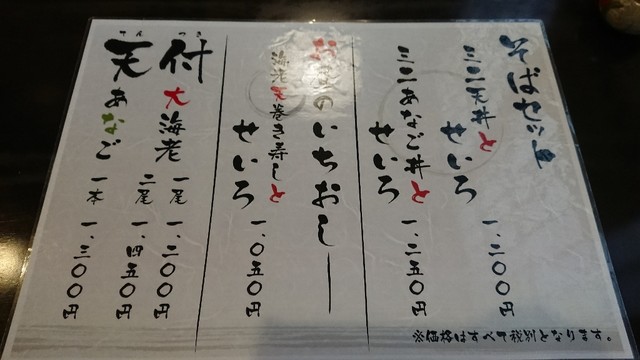 そばセット
ミニ天丼と
せいろ
一、二〇〇円
ミニあなご丼と
せいろ
一、二五〇円
おすすめのいちおし
海老天巻き寿しと
せいろ
一、〇五〇円
天付
てんつき
大海老
一尾 一、二〇〇円
二尾 一、四五〇円
あなご
一本 一、三〇〇円
※価格はすべて税別となります。